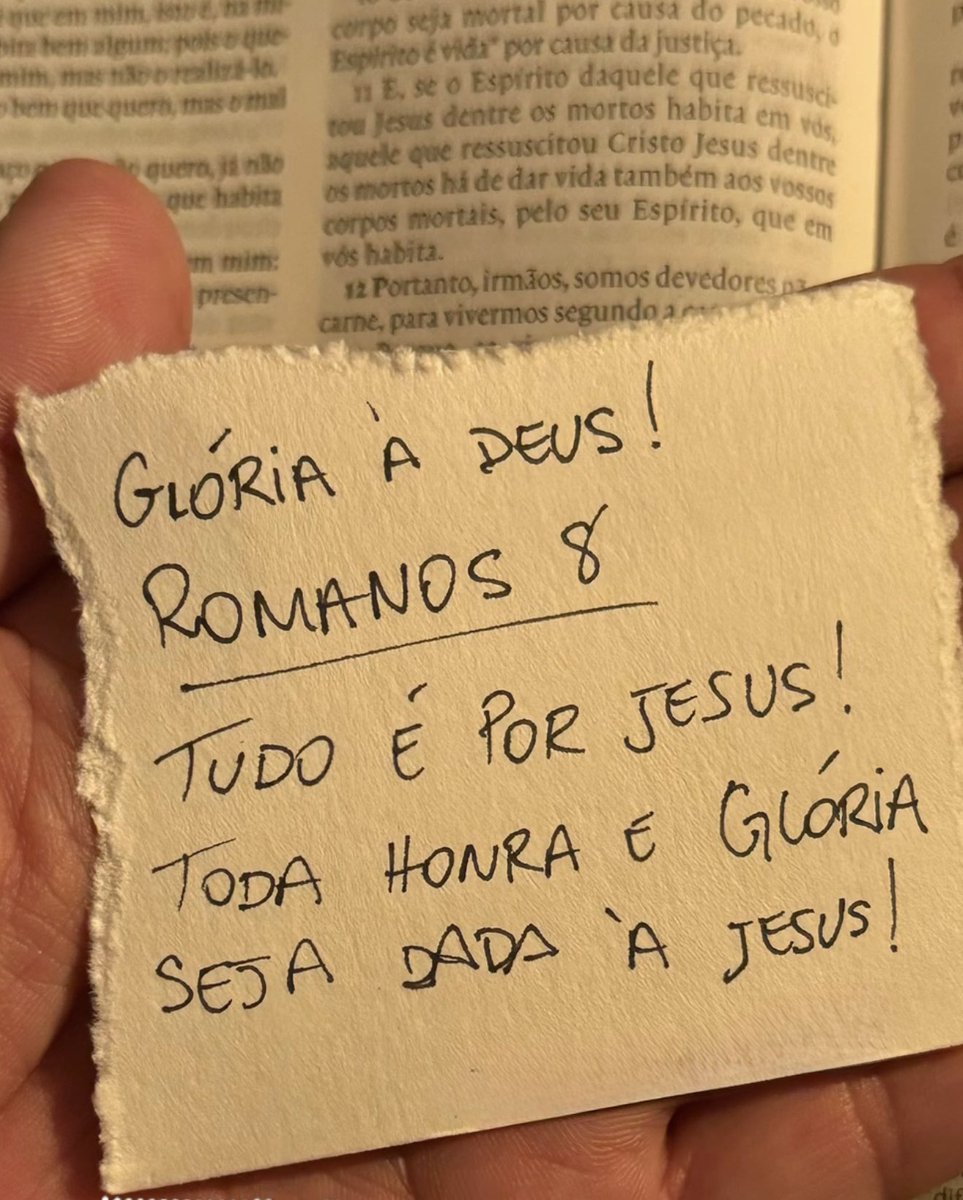 que em mim, isto é, na mi-
bem algum; pois o que-
mim, mas não o realizá-lo.
o bem que quero, mas o mal
quero, já não
que habita
em mim:
presen-
corpo seja mortal por causa do pecado, o
Espírito é vida" por causa da justiça.
11 E, se o Espírito daquele que ressusci-
tou Jesus dentre os mortos habita em vós,
aquele que ressuscitou Cristo Jesus dentre
os mortos há de dar vida também aos vossos
corpos mortais, pelo seu Espírito, que em
vós habita.
12 Portanto, irmãos, somos devedores
carne, para vivermos segundo a
GLÓRIA À DEUS!
ROMANOS 8
TUDO É POR JESUS!
TODA HONRA E GLÓRIA
SEJA DADA À JESUS!